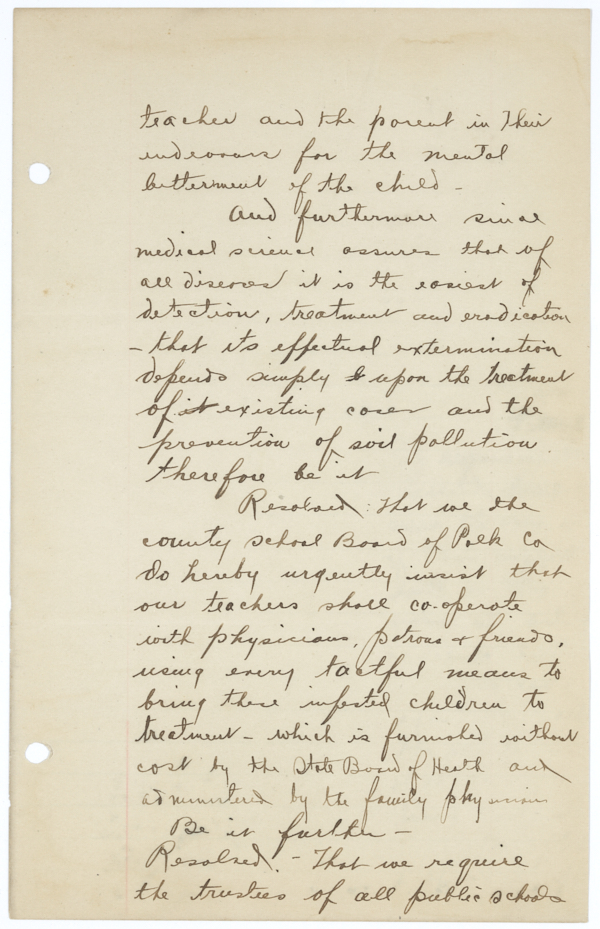 teacher and the parent in their
endeavours for the mental
betterment of the child -
And furthermore since
medical science assures that of
all diseases it is the easiest of
detection, treatment and eradication
- that its effectual extermination
depends simply upon the treatment
of existing cases and the
prevention of soil pollution.
therefore be it
Resolved: That we the
county school Board of Polk Co
do hereby urgently insist that
our teachers shall co-operate
with physicians, patrons & friends,
using every tactful means to
bring these infested children to
treatment - which is furnished without
cost by the State Board of Health and
administered by the family physician
Be it further -
Resolved. - That we require
the trustees of all public schools